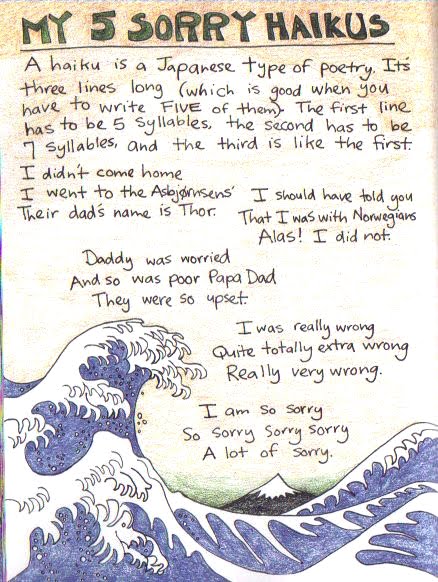 MY 5 SORRY HAIKUS
A haiku is a Japanese type of poetry. It's
three lines long (which is good when you
have to write FIVE of them). The first line
has to be 5 syllables, the second has to be
7 syllables, and the third is like the first.
I didn't come home
I went to the Asbjørnsens'
Their dad's name is Thor.
I should have told you
That I was with Norwegians
Alas! I did not.
Daddy was worried
And so was poor Papa Dad
They were so upset.
I was really wrong
Quite totally extra wrong
Really very wrong.
I am so sorry
So sorry sorry sorry
A lot of sorry.